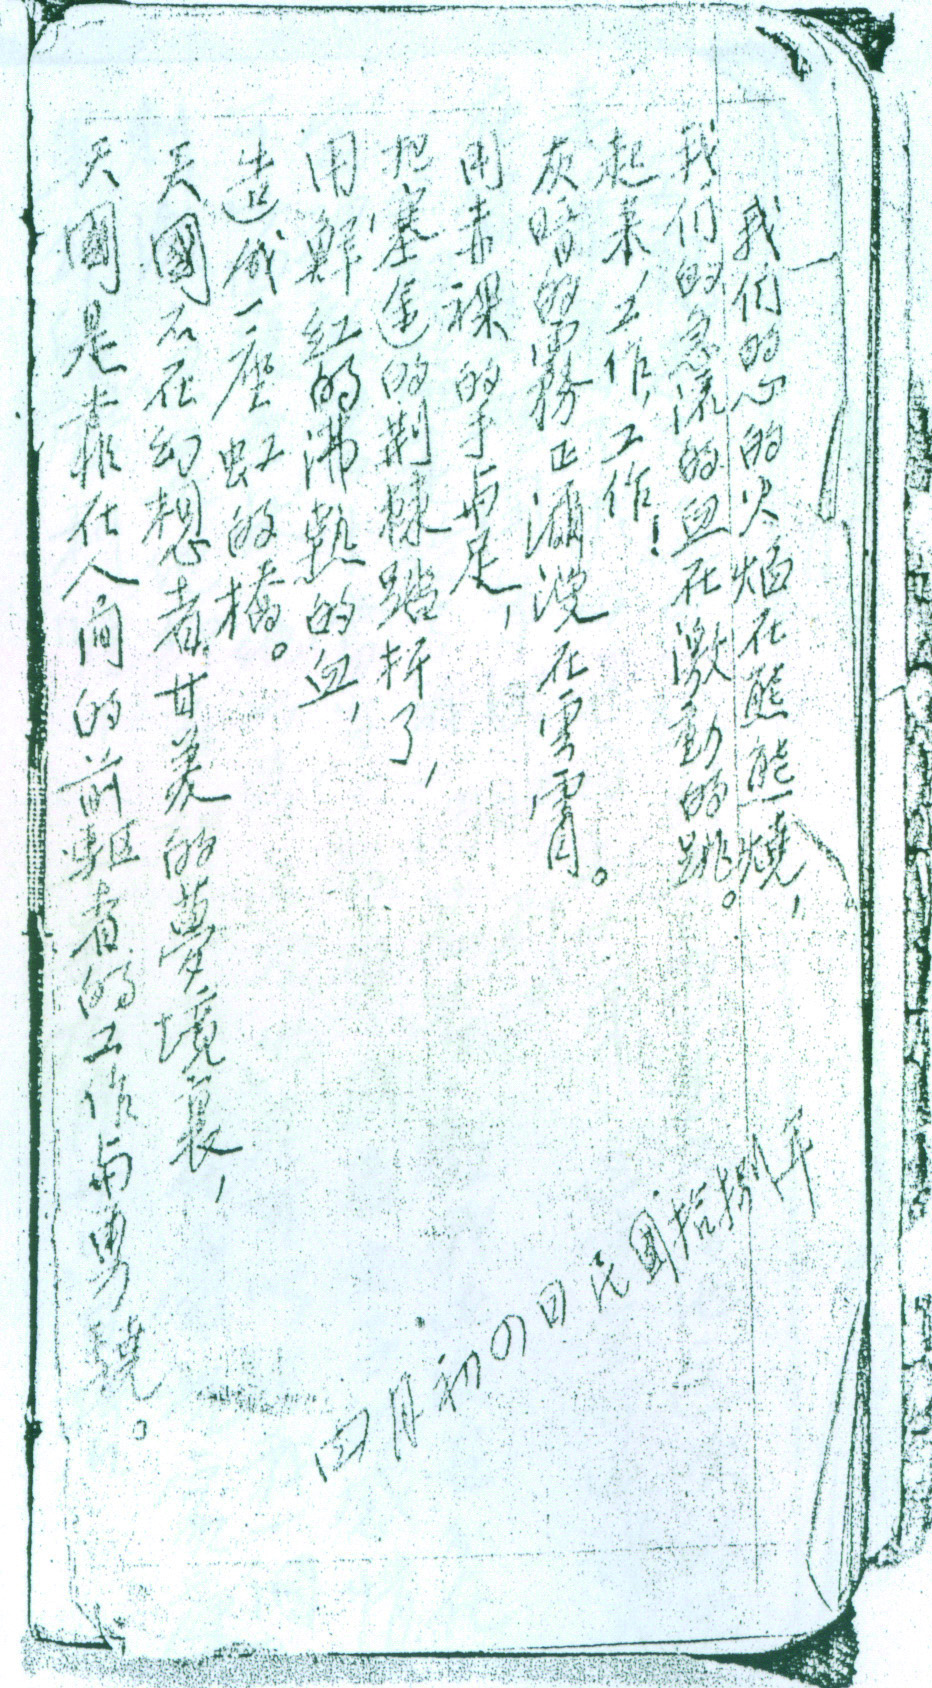 我们的心的火焰在熊熊燒，
我们的急流的血在激動的跳。
起来，工作，工作！
灰暗的霧正瀰漫在雲霄。
用赤裸的手与足，
把塞途的荆棘踏折了，
用鮮红的沸熱的血，
造成一座虹的橋。
天國不在幻想者甘美的夢境裏，
天國是靠在人间的前駆者的工作与勇驍。
四月初四日民國拾捌年